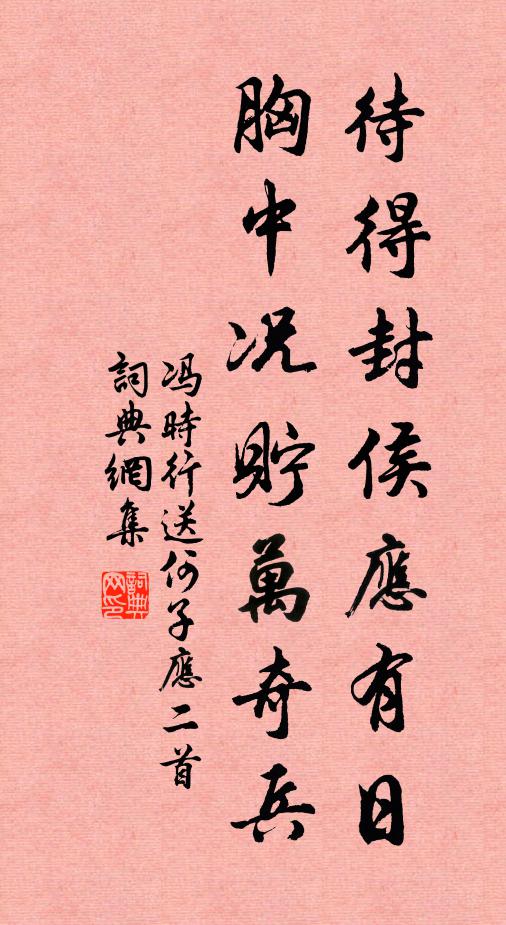 待得封侯應有日
胸中况貯萬奇兵
冯時行送何子應二首
詞典網集
詞典网印